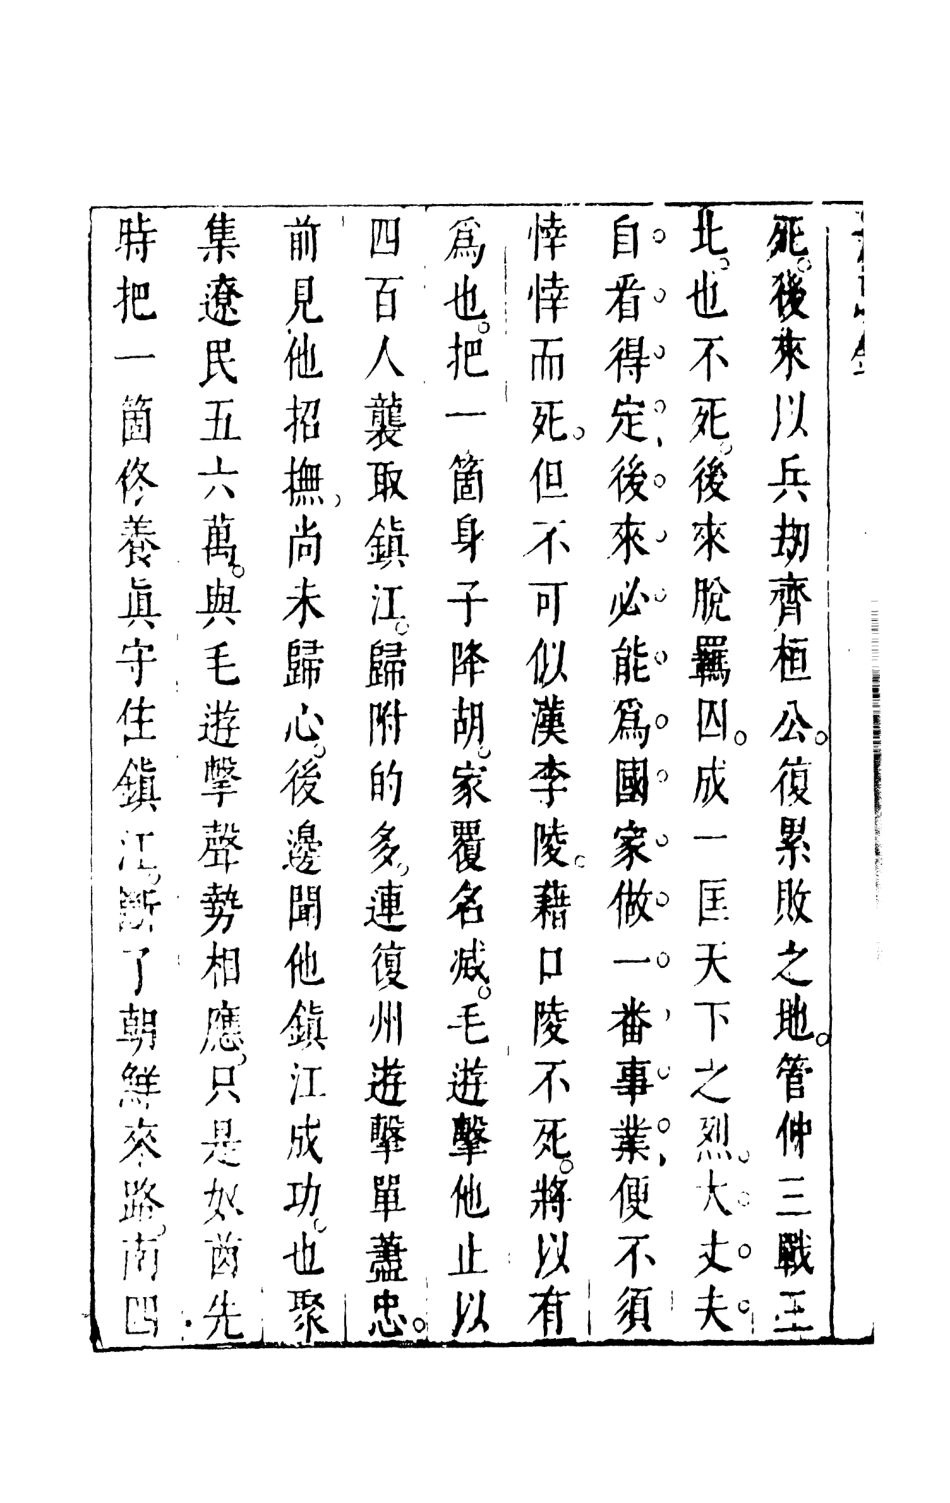 死。後來以兵劫齊桓公。復累敗之地。管仲三戰三
北。也不死。後來脫羈囚。成一匡天下之烈。大丈夫
自看得定、後來必能爲國家做一番事業、便不須
悻悻而死。但不可似漢李陵。藉口陵不死。將以有
爲也。把一箇身子降胡。家覆名滅。毛遊擊他止以
四百人襲取鎮江。歸附的多。連復州遊擊單藎忠。
前見他招撫、尚未歸心。後邊聞他鎮江成功。也聚
集遼民五六萬。與毛遊擊聲勢相應。只是奴酋先
時把一箇佟養眞守住鎮江。斷了朝鮮來路。南四